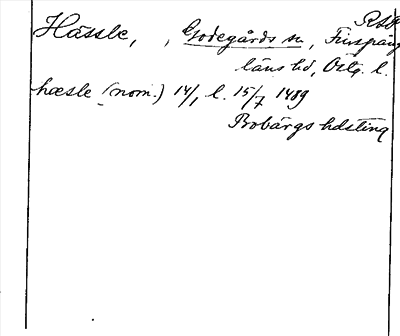 RAP
Hässle, , Godegårds sn, Finspång
läns hd, Östg. l.
hæsle (nom.) 14/1 l. 15/7 1489
Bobärgs hdsting